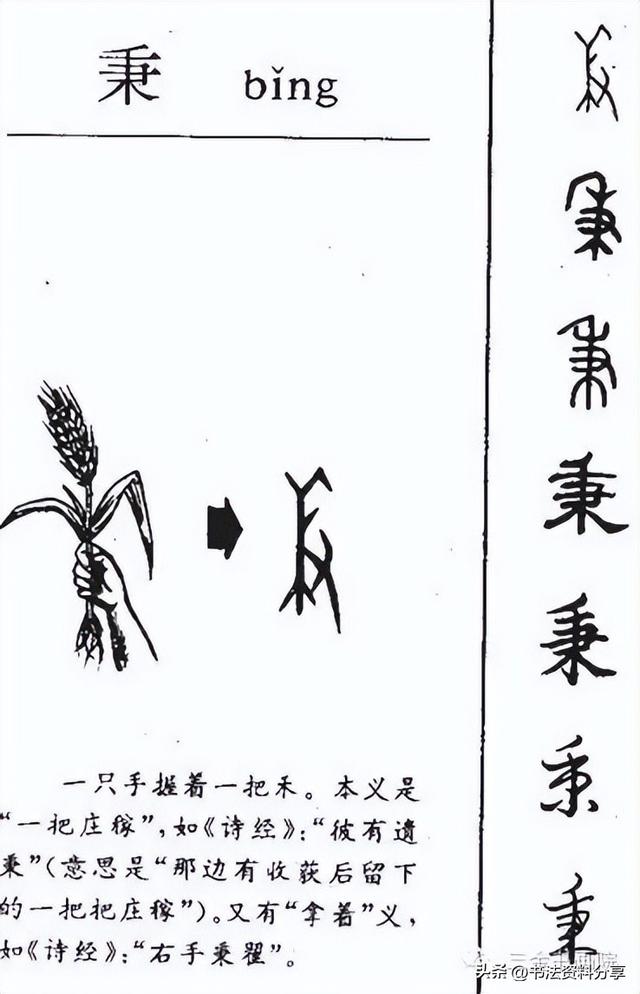 秉 bǐng
一只手握着一把禾。本义是
“一把庄稼”,如《诗经》:“彼有遗
秉”(意思是“那边有收获后留下
的一把把庄稼”)。又有“拿着”义,
如《诗经》:“右手秉翟”。
秉
秉
秉
秉
秉
秉
秉
头条 @书法资料分享